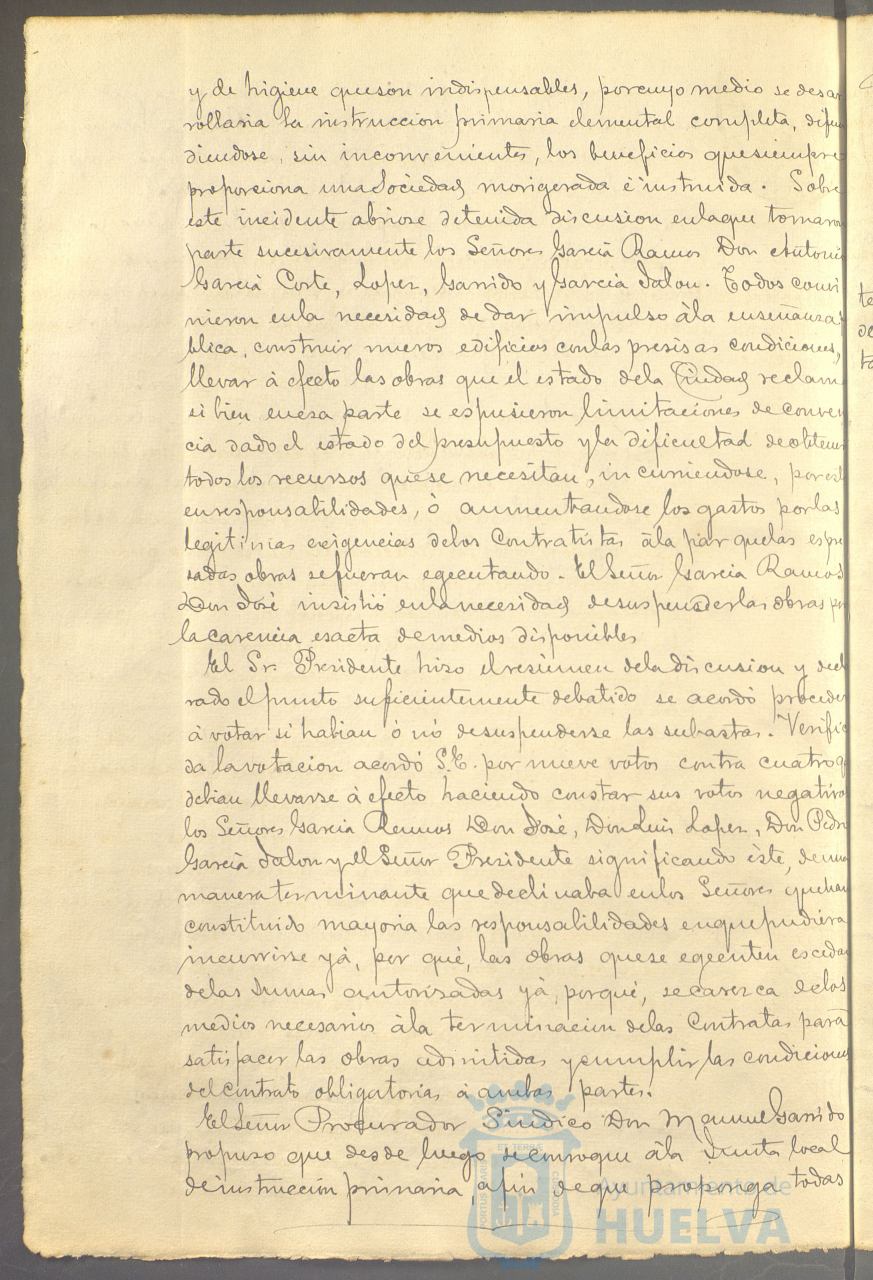 y de higiene queson indispensables, porcuyo medio se desar
rollaria la instruccion primaria elemental completa, difun
diendose, sin inconvenientes, los beneficios quesiempre
proporciona una Sociedad morigerada é instruida. Sobre
este incidente abriose detenida discusion enlaque tomaron
parte sucesivamente los Señores Garcia Ramos Don Antonio
Garcia Corte, Lopez, Garrido y Garcia Jalon. Todos convi
nieron enla necesidad de dar impulso àla enseñanza
blica, construir nuevos edificios conlas presisas condiciones,
llevar à efecto las obras que el estado dela Ciudad reclam
si bien enesa parte se espusieron limitaciones de conven
cia dado el estado del presupuesto yla dificultad deobtener
todos los recursos quese necesitan, incurriendose, por
enresponsabilidades, ò aumentandose los gastos porlas
legitimas exigencias delos Contratistas àla par quelas espre
sadas obras sefueran egecutando. El Señor Garcia Ramos
Don José insistió enlanecesidad desuspenderlas obras por
lacarencia esacta demedios disponibles
El Sr. Presidente hizo elresúmen deladiscusion y decl
rado elpunto suficientemente debatido se acordó proceder
á votar si habian ó nó desuspenderse las subastas. Verifica
da lavotacion acordó S.E. por nueve votos contra cuatro q
debian llevarse à efecto haciendo constar sus votos negativos
los Señores Garcia Ramos Don José, Don Luis Lopez, Don Pedro
Garcia Jalon y el Señor Presidente significando éste, deuna
manera terminante que declinaba enlos Señores quehan
constituido mayoria las responsabilidades enquepudiera
incurrirse yà, por qué, las obras quese egecuten escedan
delas sumas autorizadas yà, porqué, secarezca delos
medios necesarios àla terminacion delas Contratas para
satisfacer las obras admitidas ycumplir las condiciones
delcontrato obligatorias á ambas partes.
El Señor Procurador Sindico Don Manuel Garrido
propuso que desde luego seconvoque àla Junta local
deinstruccion primaria, afin deque proponga todas
Ayuntamiento de
HUELVA